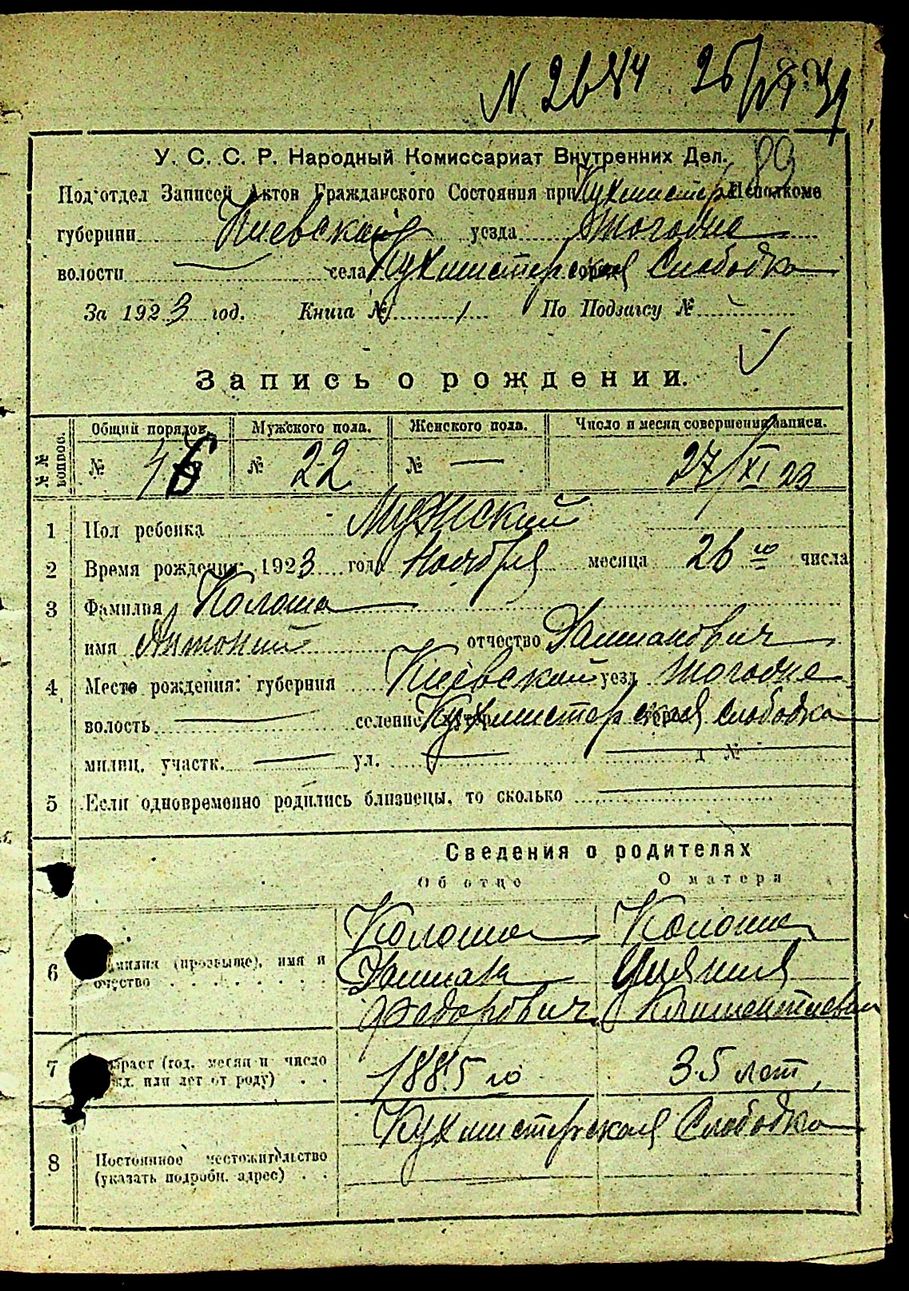 N 2644 26/VI 31
89
У. С. С. Р. Народный Комиссариат Внутренних Дел.
Подотдел Записей Актов Гражданского Состояния при Кухмистер Исполкоме
губернии Киевской уезда тогодне
волости — села Кухмистерская Слободка
За 1923 год. Книга № 1 По Подзагсу №
Запись о рождении.
№№ вопрос. Общий порядов. Мужского пола. Женского пола. Число и месяц совершения записи.
№ 46 № 22 № — 27/XI 23
1 Пол ребенка Мужский
2 Время рождения: 1923 год Ноября месяца 26 го числа
3 Фамилия Колоша
имя Антоний отчество
4 Место рождения: губерния Киевской уезд тогодне
волость — селение Кухмистерская Слободка
милиц. участк. — ул. — д №
5 Если одновременно родились близнецы, то сколько —
Сведения о родителях
Об отце О матери
Колоша Колоша
6 Фамилия (прозвыще), имя и
отчество
Федорович Климентиевна
7 Возраст (год, месяц и число
рожд. или лет от роду) 1885 го 35 лет
Кухмистерская Слободка
8 Постоянное местожительство
(указать подробн. адрес)